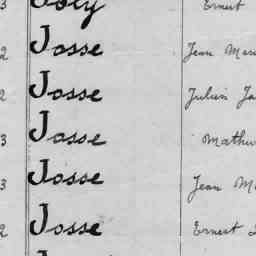 3 Ernest
2 Josse Jean
2 Josse Julien
3 Josse
3 Josse Jean
2 Josse Ernest